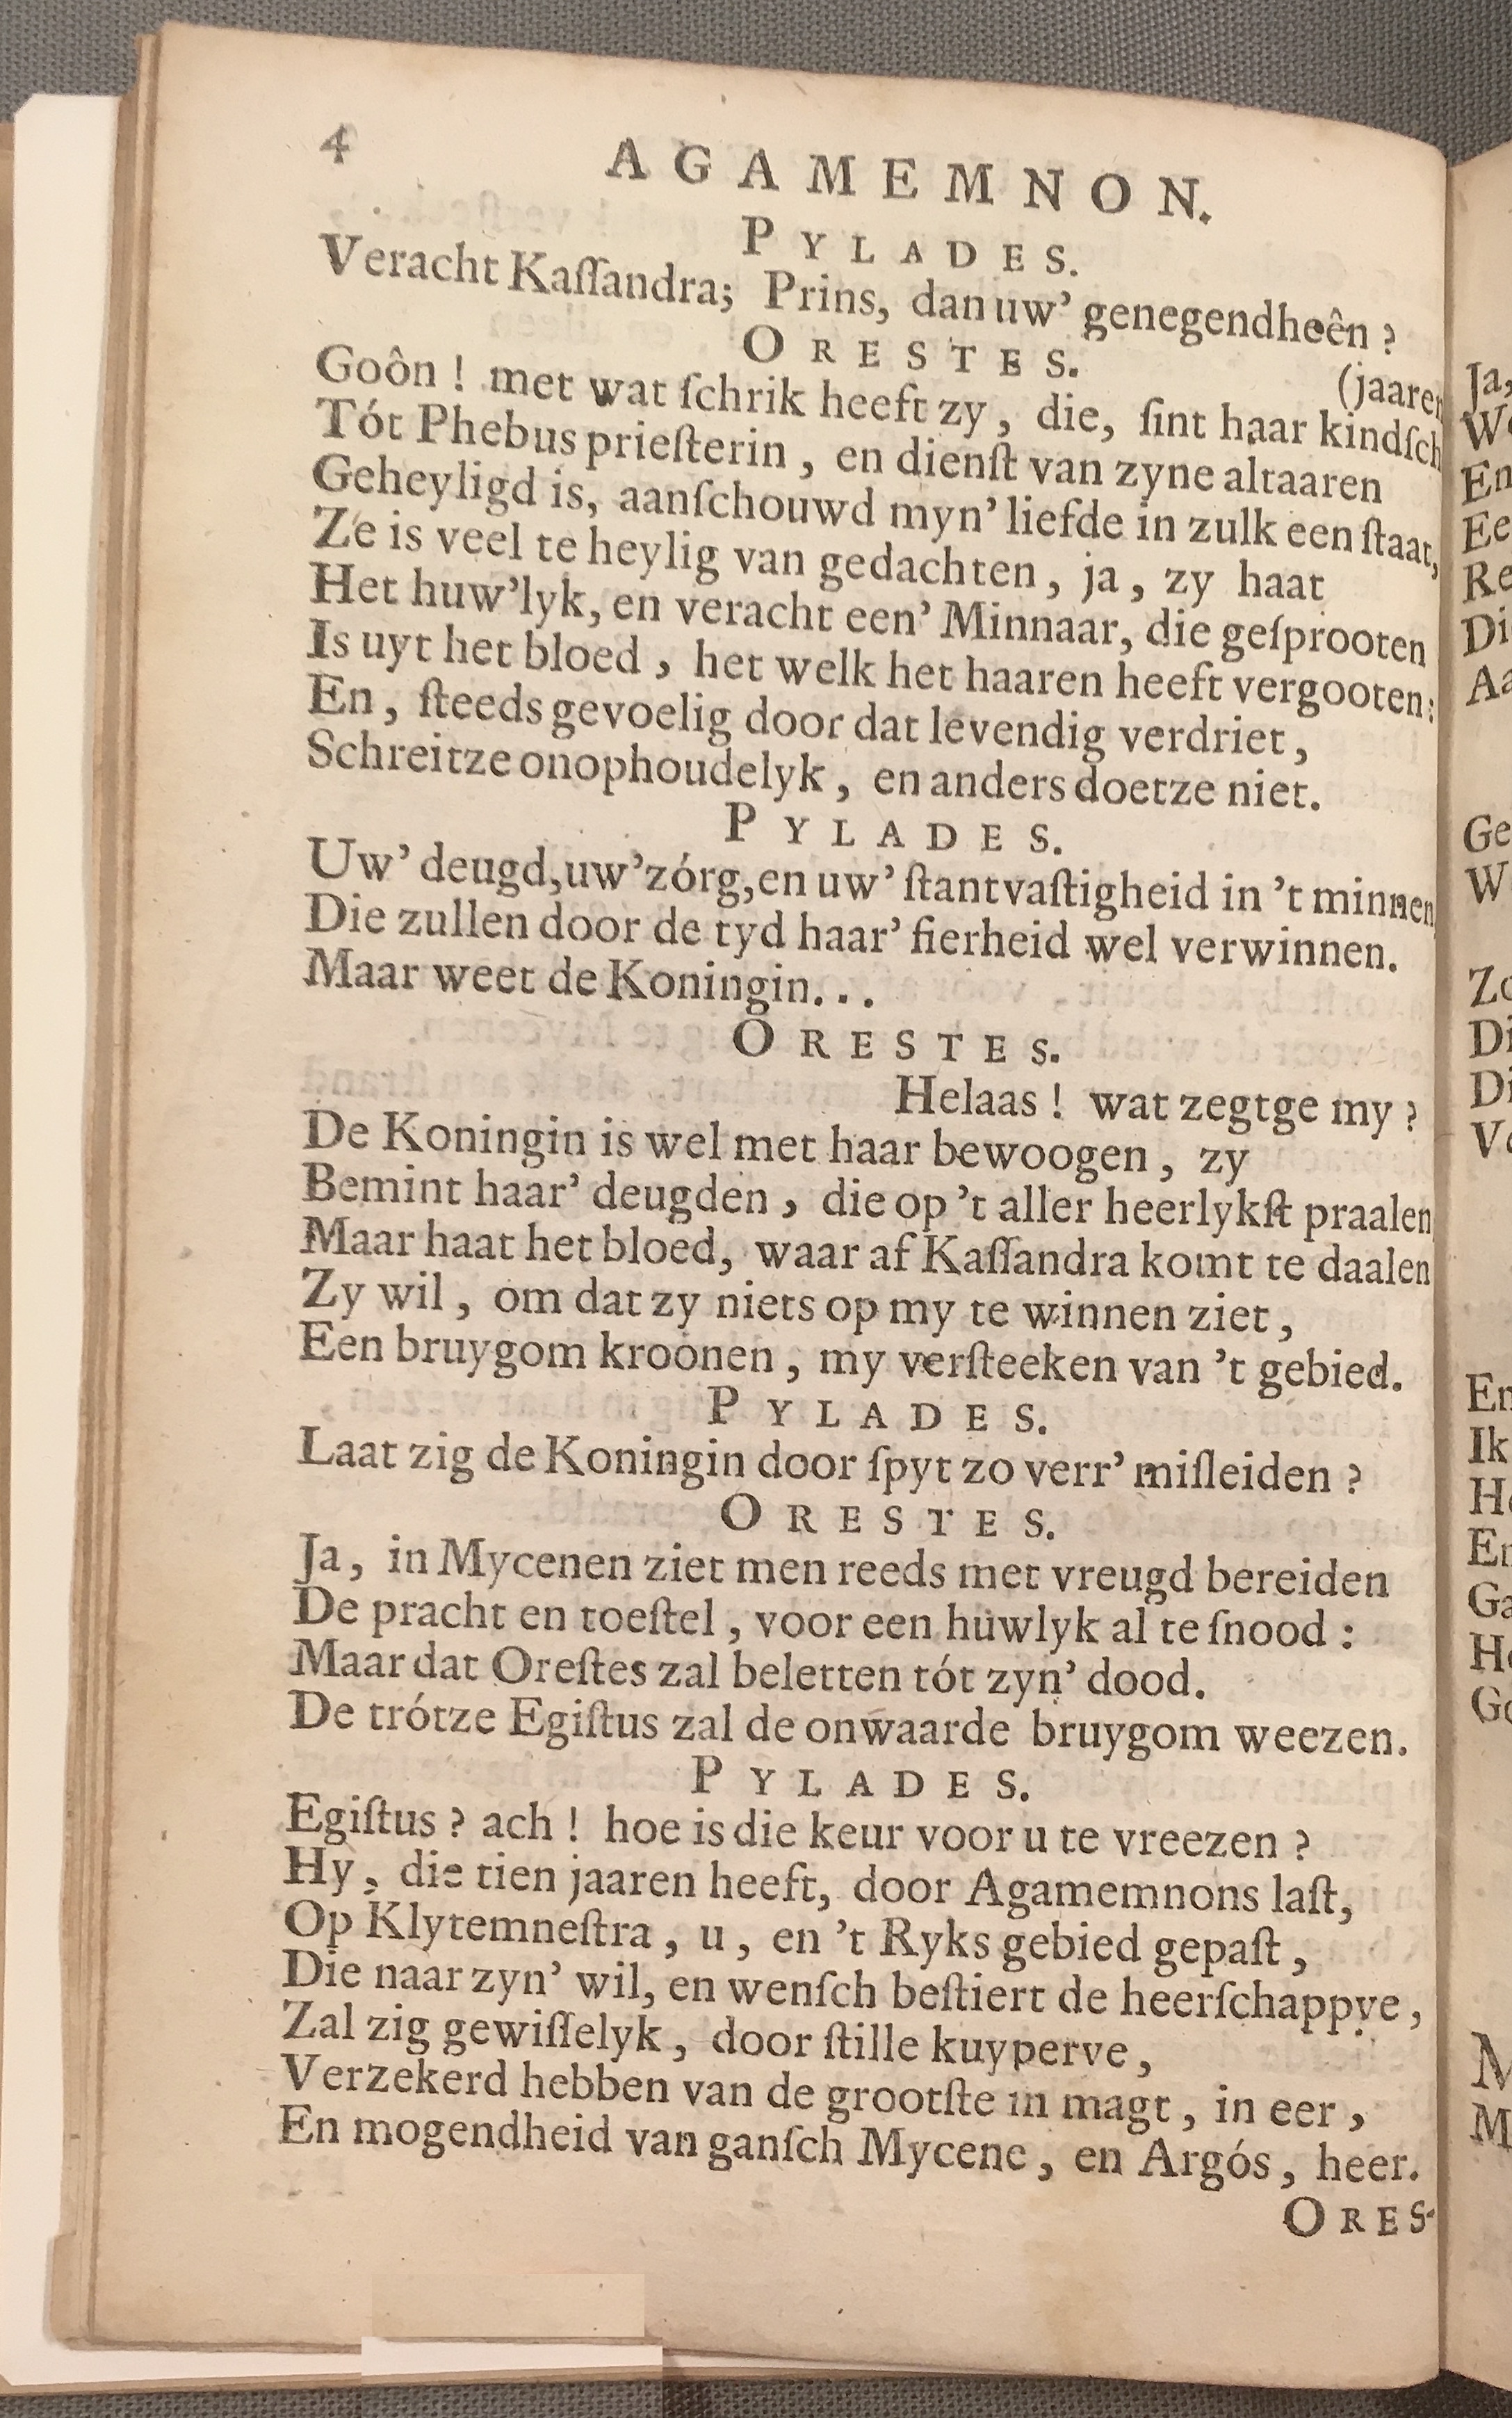 4
AGAMEMNON.
PYLADES.
Veracht Kaſſandra; Prins, dan uw’ genegendheên?
ORESTES.
(jaaren
Goôn! met wat ſchrik heeft zy, die, ſint haar kindſch
Tót Phebus prieſterin, en dienſt van zyne altaaren
Geheyligd is, aanſchouwd myn’ liefde in zulk een ſtaat,
Ze is veel te heylig van gedachten, ja, zy haat
Het huw’lyk, en veracht een’ Minnaar, die geſprooten
Is uyt het bloed, het welk het haaren heeft vergooten:
En, ſteeds gevoelig door dat levendig verdriet,
Schreitze onophoudelyk, en anders doetze niet.
PYLADES.
Uw’ deugd, uw’ zórg, en uw’ ſtantvaſtigheid in ’t minnen
Die zullen door de tyd haar’ fierheid wel verwinnen.
Maar weet de Koningin...
ORESTES.
Helaas! wat zegtge my?
De Koningin is wel met haar bewoogen, zy
Bemint haar’ deugden, die op ’t aller heerlykſt praalen
Maar haat het bloed, waar af Kaſſandra komt te daalen
Zy wil, om dat zy niets op my te winnen ziet,
Een bruygom kroonen, my verſteeken van ’t gebied.
PYLADES.
Laat zig de Koningin door ſpyt zo verr’ miſleiden?
ORESTES.
Ja, in Mycenen ziet men reeds met vreugd bereiden
De pracht en toeſtel, voor een huwlyk al te ſnood:
Maar dat Oreſtes zal beletten tót zyn’ dood.
De trótze Egiſtus zal de onwaarde bruygom weezen.
PYLADES.
Egiſtus? ach! hoe is die keur voor u te vreezen?
Hy, die tien jaaren heeft, door Agamemnons laſt,
Op Klytemneſtra, u, en ’t Ryks gebied gepaſt,
Die naar zyn’ wil, en wenſch beſtiert de heerſchappye,
Zal zig gewiſſelyk, door ſtille kuyperye,
Verzekerd hebben van de grootſte in magt, in eer,
En mogendheid van ganſch Mycene, en Argós, heer.
ORES-
Ja,
En
Ee
Re
Di
Aa
Ge
W
Zo
Di
Di
Ve
En
Ik
He
En
Ga
He
Go
M
M